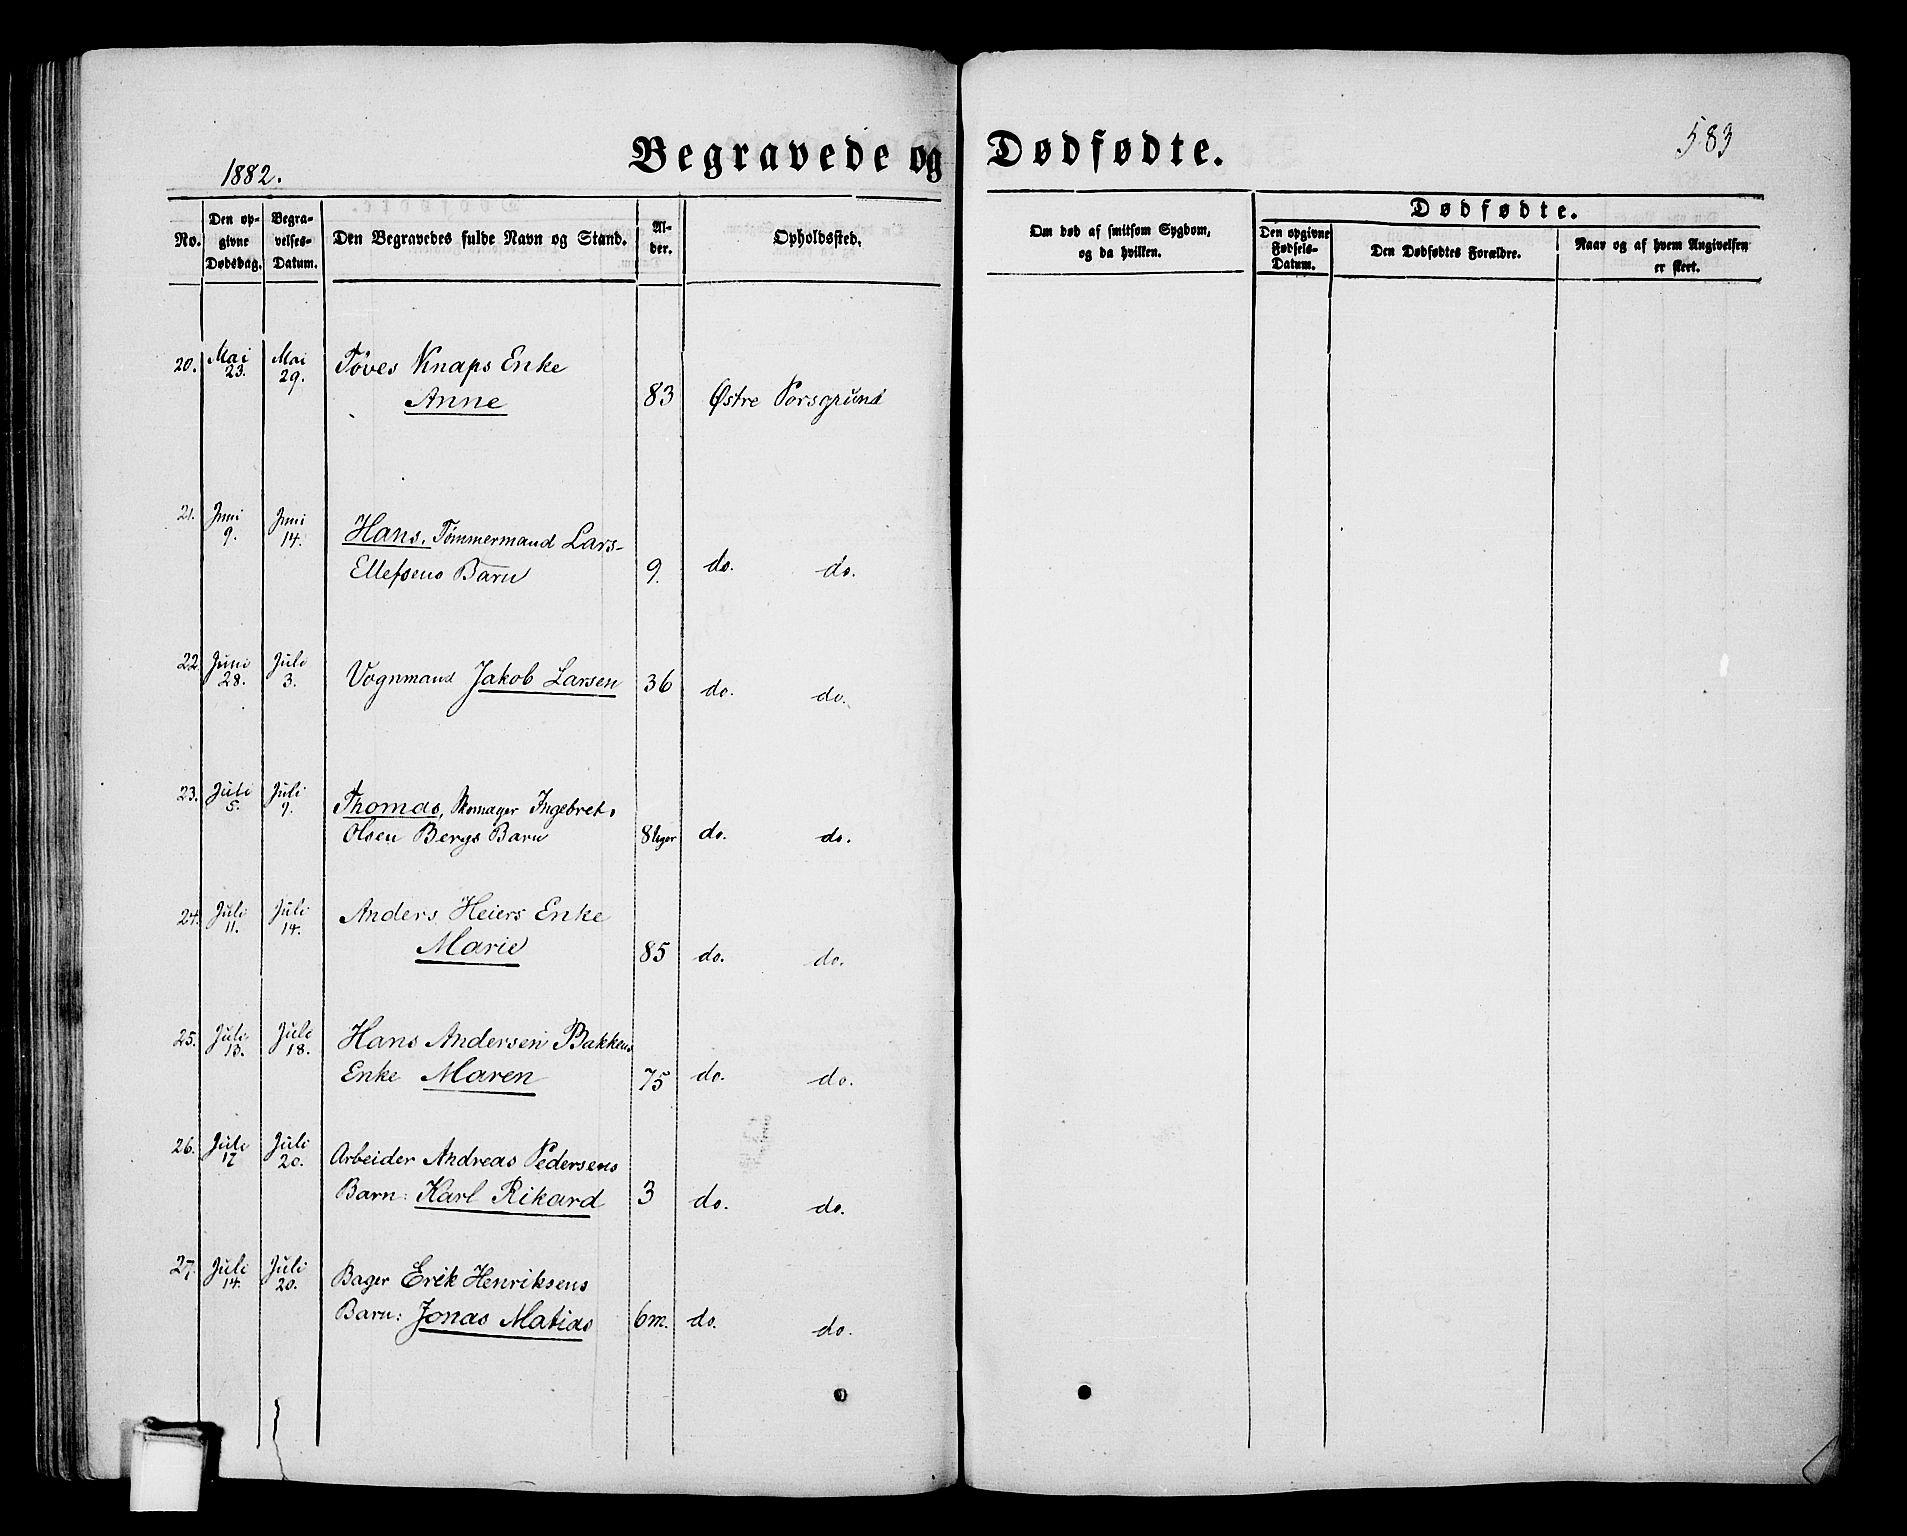 1882.
Begravede og Dødfødte.
583
No.
Den opgivne Dødsdag.
Begravelses-Datum.
Den Begravedes fulde Navn og Stand.
Alder.
Opholdssted.
Om død af smitsom Sygdom, og da hvilken.
Dødfødte.
Den opgivne Fødsels-Datum.
Den Dødfødtes Forældre.
Naar og af hvem Angivelsen er skeet.
20. Mai 23. Mai 29. Toves Knaps Enke
Anne 83 Østre Porsgrund
21. Juni 9. Juni 14. Hans, Tømmermand Lars
Ellefsens Barn 9. do. do.
22. Juni 28. Juli 3. Vognmand Jakob Larsen 36 do. do.
23. Juli 5. Juli 7. Thomas, Skomager Ingebret
Olsen Bergs Barn 8 Uger do. do.
24. Juli 11. Juli 14. Anders Heiers Enke
Marie 85 do. do.
25. Juli 13. Juli 18. Hans Andersen Bakkens
Enke Maren 75 do. do.
26. Juli 17 Juli 20. Arbeider Andreas Pedersens
Barn: Karl Rikard 3 do. do.
27. Juli 14. Juli 20. Bager Erik Henriksens
Barn: Jonas Matias 6 m. do. do.